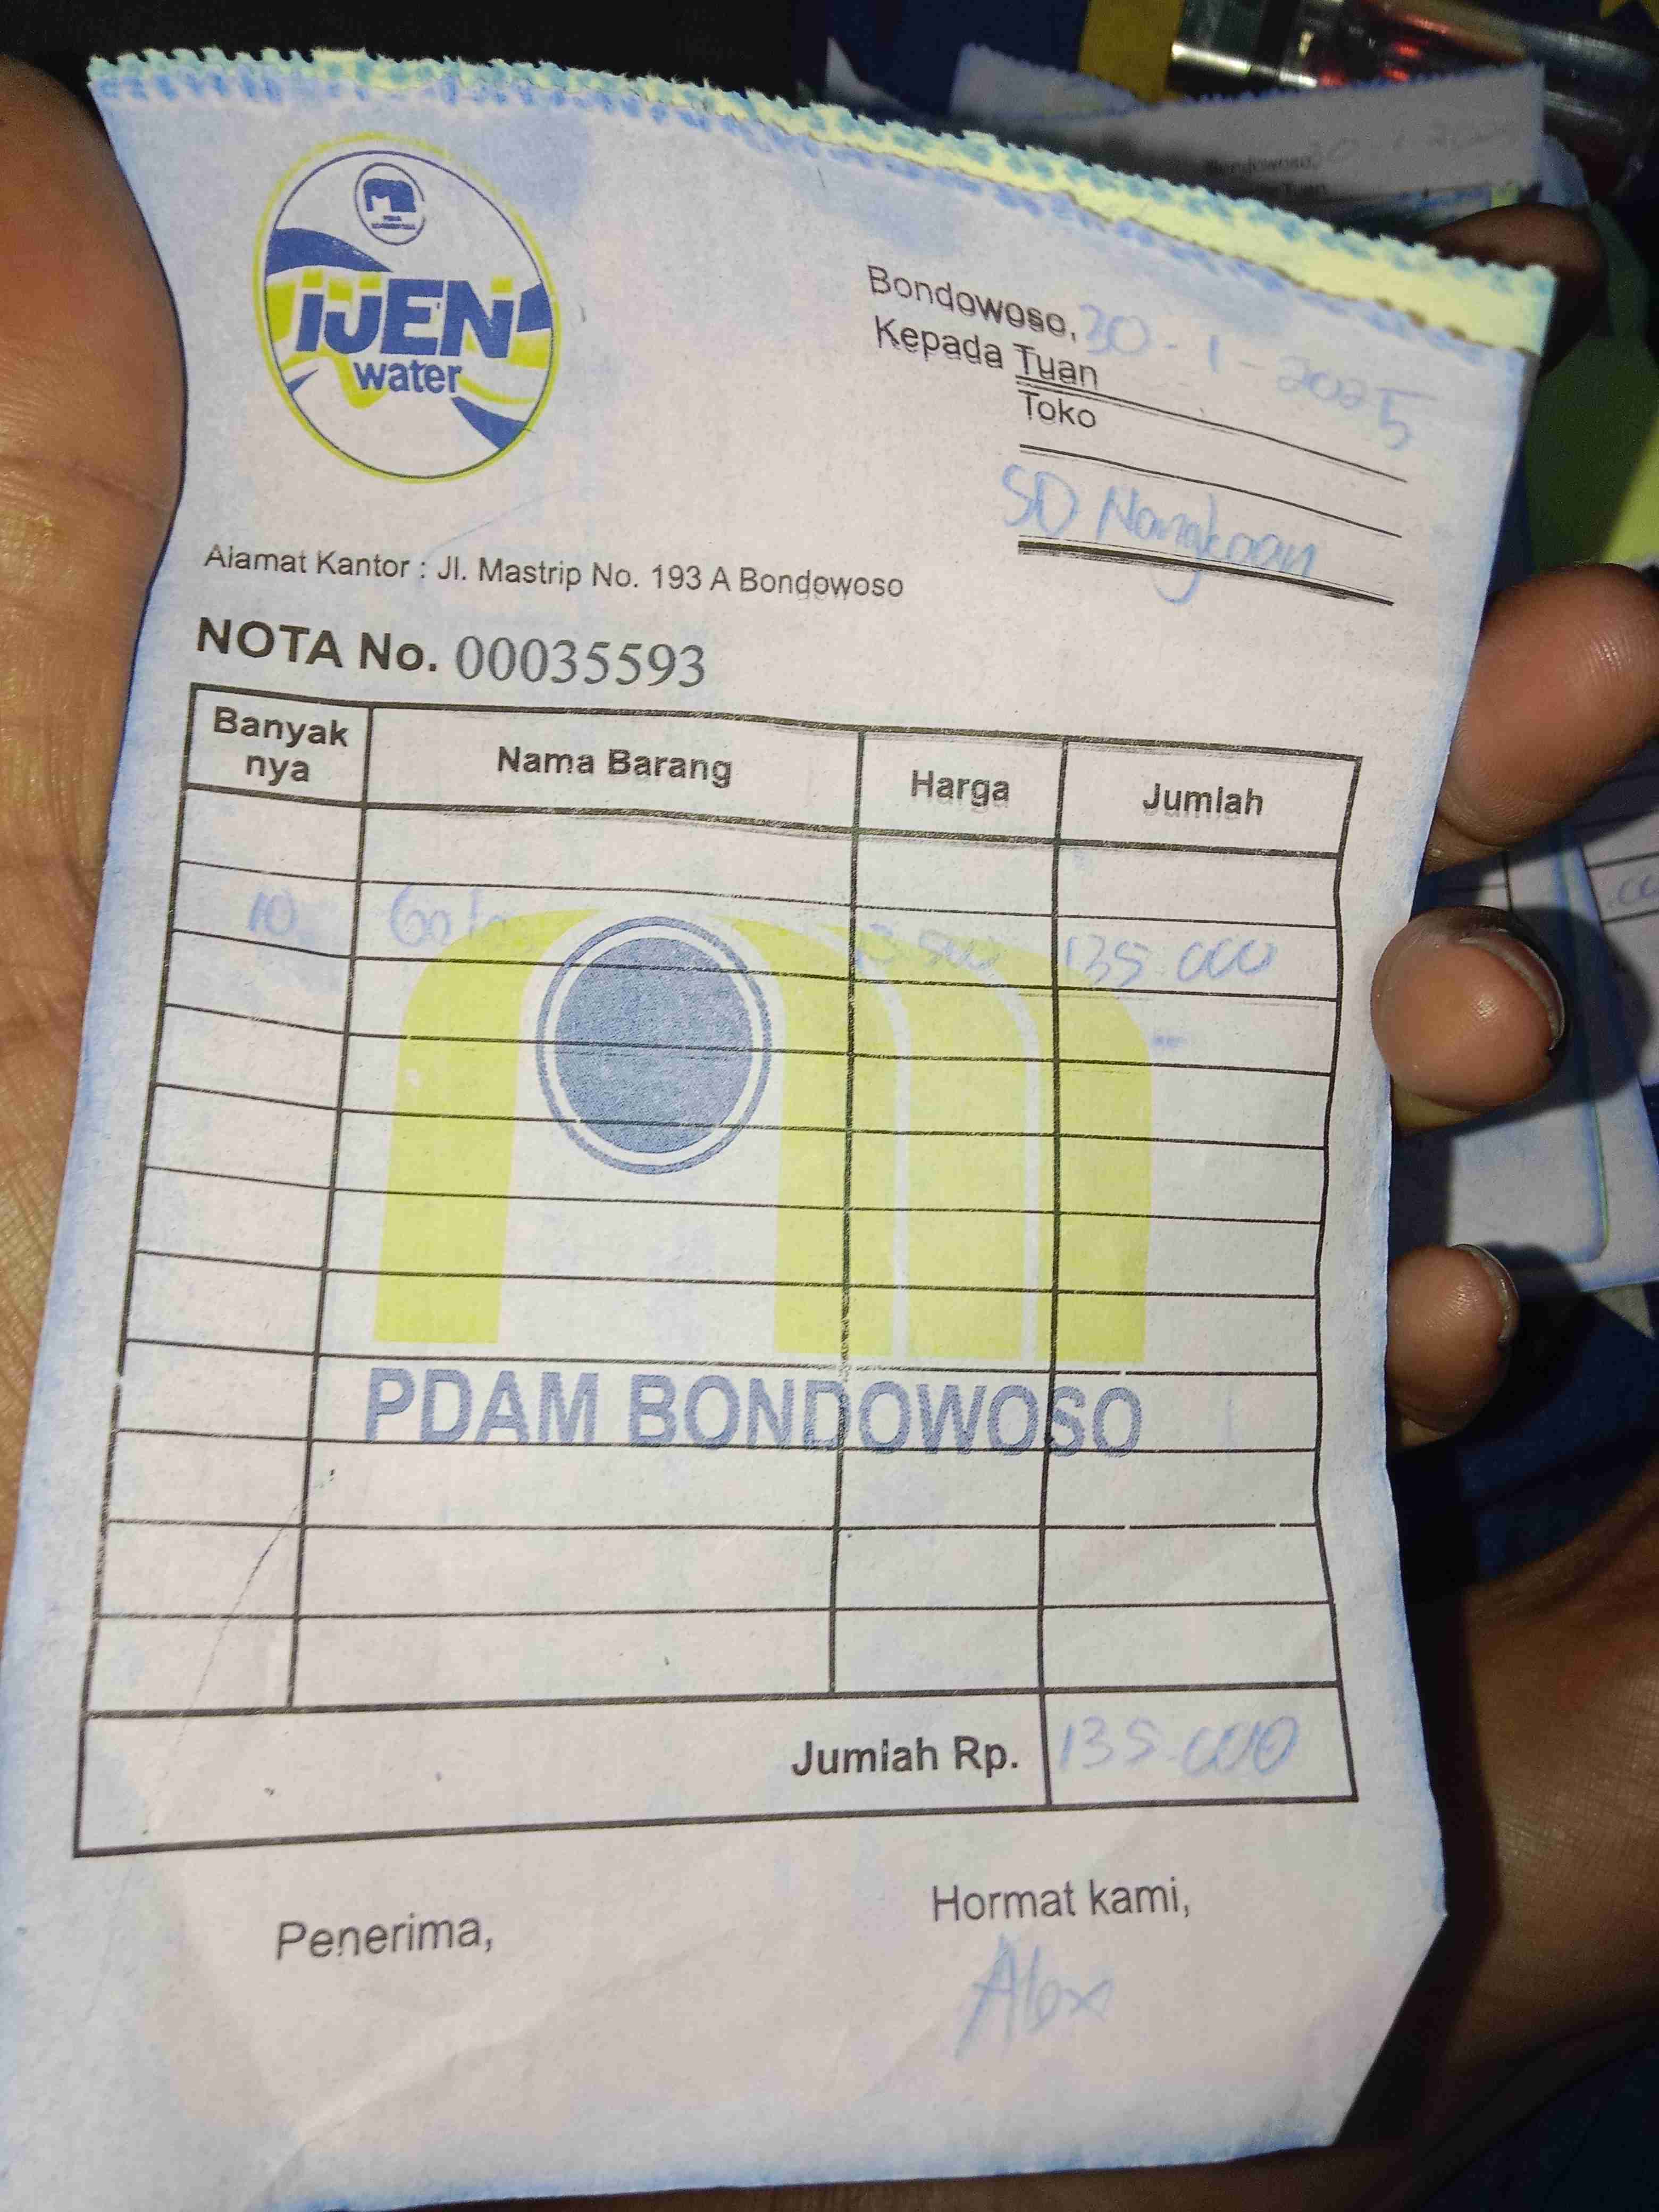 IJEN
water
Bondowoso, 30 - 1 - 2025
Kepada Tuan
Toko
SD Nangkaan
Alamat Kantor : Jl. Mastrip No. 193 A Bondowoso
NOTA No. 00035593
Banyak nya Nama Barang Harga Jumlah
10 135.000
PDAM BONDOWOSO
Jumlah Rp. 135.000
Penerima,
Hormat kami,
Alex